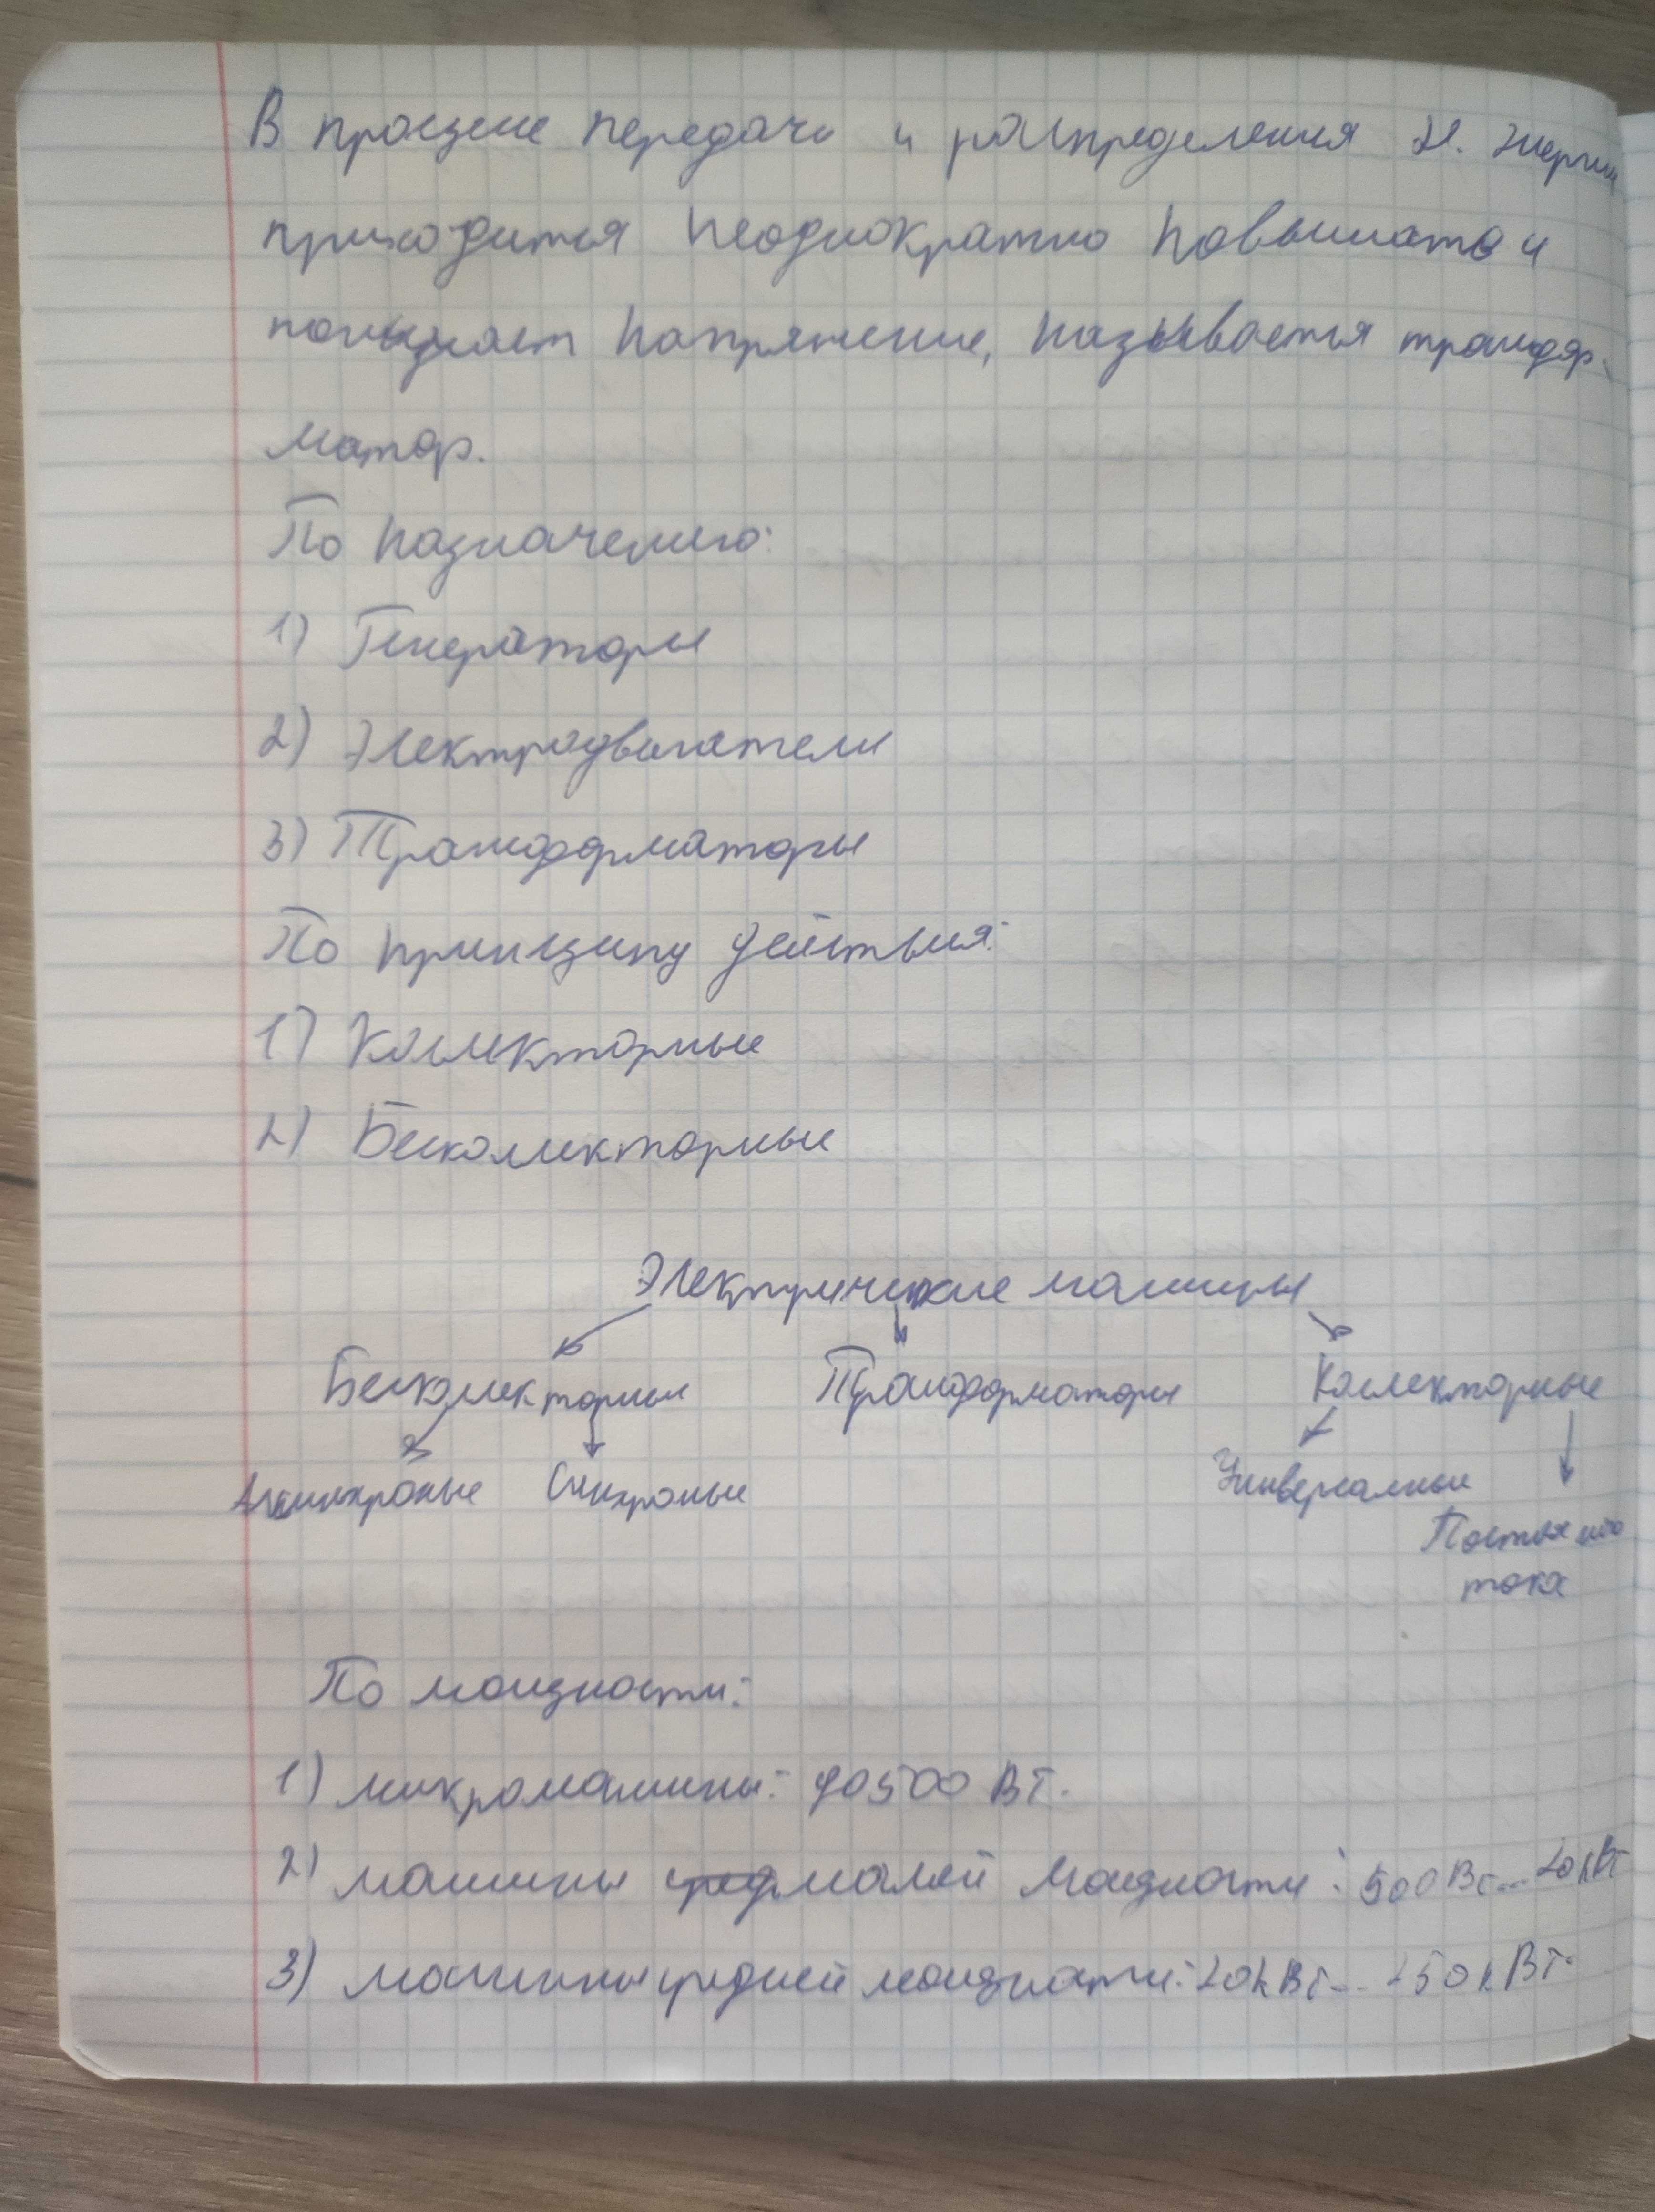 В процессе передачи и распределения эл. энергии
приходится неоднократно повышать и
понижает напряжение, называется трансфор-
матор.
По назначению:
1) Генераторы
2) Электродвигатели
3) Трансформаторы
По принципу действия:
1) Колекторные
2) Бесколекторные
Электрические машины
Бесколекторные Трансформаторы Колекторные
Асинхроные Синхроные Универсалные
Постоян ого
тока
По мощности:
1) микромашины: до 500 Вт.
2) машины малой мощности: 500 Вт... 20 кВт
3) машины средней мощности: 20 кВт... 250 кВт.